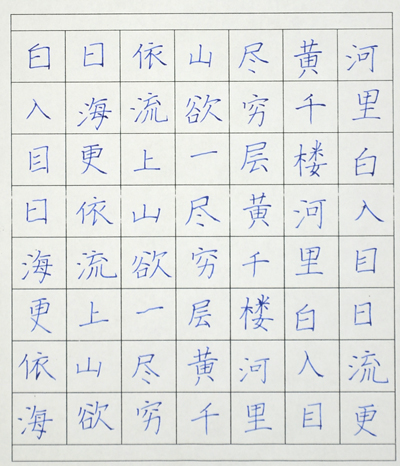 白日依山尽黄河
入海流欲穷千里
目更上一层楼白
日依山尽黄河入
海流欲穷千里目
更上一层楼白日
依山尽黄河入流
海欲穷千里目更